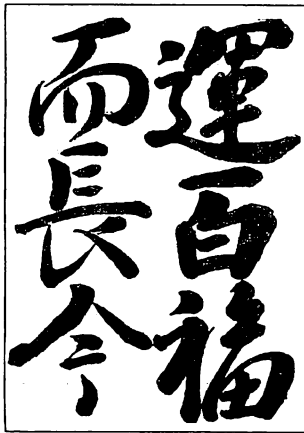 運百福
而長今